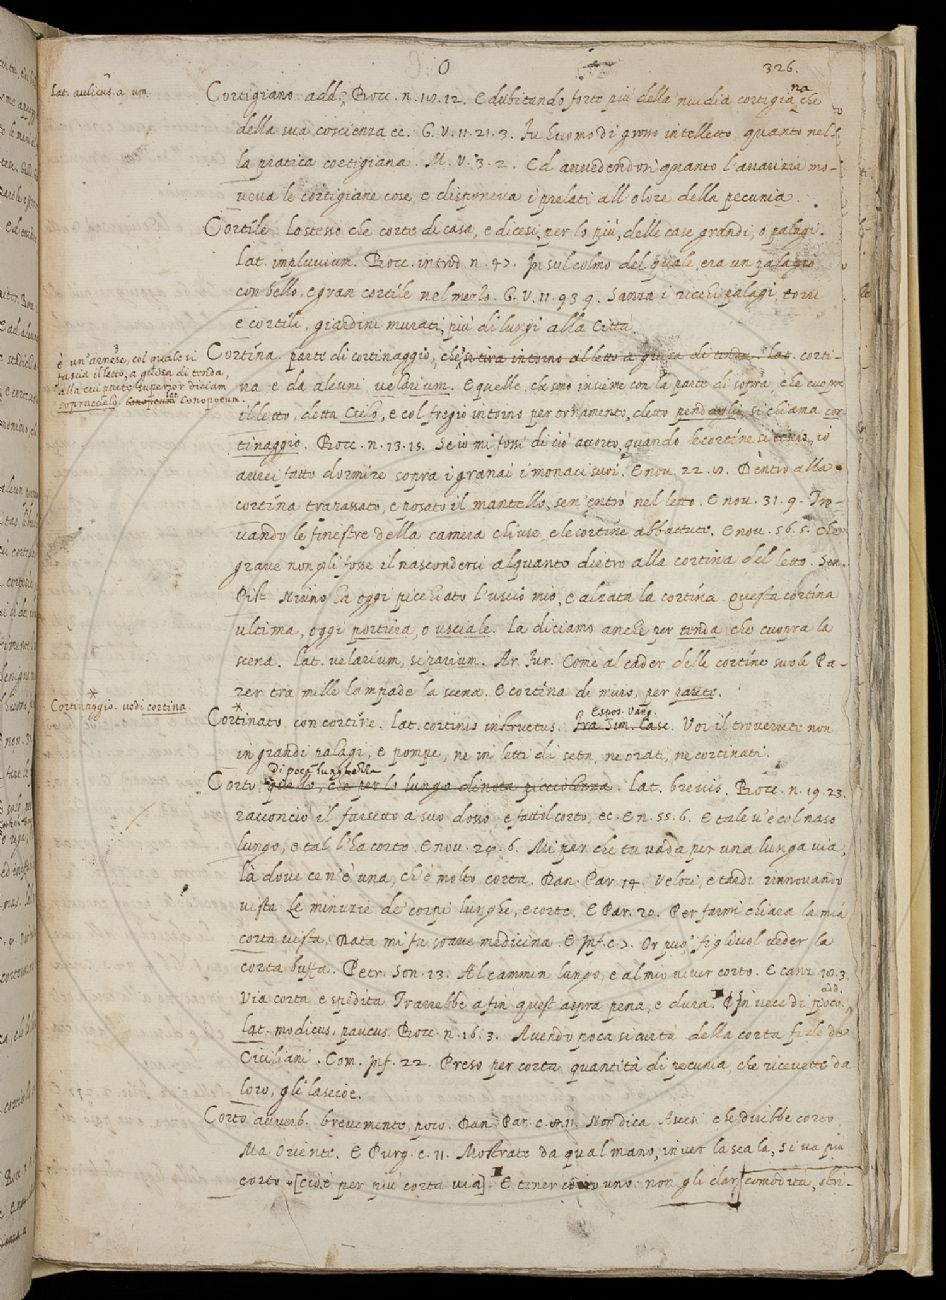 O
326.
Lat. aulicus. a. um.
Cortigiano add. Bocc. n. 10. 12. E dubitando forte più della nuidia cortigiana che
della sua coscienza ec. G. V. 11. 21. 3. Fu huomo di grosso intelletto, quanto nel-
la pratica cortigiana. M. V. 3. 2. Ed avvedendosi quanto l'avarizia mo-
veva le cortigiane cose, e disponeva i prelati all'olore della pecunia.
Cortile. Lo stesso che corte di casa, e dicesi, per lo più, delle case grandi, o palagi.
Lat. impluvium. Bocc. introd. n. 47. In sul colmo del quale, era un palagio
con bello, e gran cortile nel mezzo. G. V. 11. 93. 9. Sanza i ricchi palagi, torri
e cortili, giardini murati, più di lungi alla Città.
è un'arnese, col quale si
fascia il letto, a guisa di tenda,
alla cui parte superior diciam
sopraccielo. Conopeum lat. Conopoeum.
Cortina. parte di cortinaggio, che si tira intorno al letto a guisa di tenda. lat. corti-
na e da alcuni velarium. E quelle, che sono insieme con la parte di sopra che cuopre
il letto, detta Cielo, e col fregio intorno per ornamento, detto pendaglio, si chiama cor-
tinaggio. Bocc. n. 13. 15. Se io mi fossi di ciò accorto, quando le cortine si tesero, io
avrei fatto dormire sopra i granai i monaci suoi. E nou. 22. 10. Dentro alla
cortina trapassato, e posato il mantello, sen'entrò nel letto. E nou. 31. 9. Tro-
vando le finestre della camera chiuse, e le cortine abbattute. E nou. 56. 5. Che
grave non gli fosse il nascondersi alquanto dietro alla cortina del letto. Sen.
Pist. Niuno ha oggi picchiato l'uscio mio, e alzata la cortina. Questa cortina
ultima, oggi portiera, o usciale. La diciamo anche per tenda che cuopra la
scena. Lat. velarium, siparium. Ar. Fur. Come al cader delle cortine suole Pa-
rer tra mille lampade la scena. E cortina de muro, per parete.
* Cortinaggio. vedi cortina.
* Cortinato con cortine. Lat. cortinis instructus. Fra Sim. Casc. Espos. Vang. Voi il troverreti non
in grandi palagi, e pompe, ne in letti di seta, ne orati, ne cortinati.
di poca lunghezza
Corto, quello, che per lo lungo dinota picciolezza. Lat. brevis. Bocc. n. 19. 23.
racconciò il farsetto a suo dosso e fattil corto, ec. E n. 55. 6. E tale v'è col naso
lungo, e tal l'ha corto. E nou. 20. 6. Mi par che tu vada per una lunga via,
là dove ce n'è una, ch'è molto corta. Dan. Par. 14. Veloci, e tardi rinnovando
vista Le minuzie de corpi lunghe, e corte. E Par. 20. Per farmi chiara la mia
corta vista, Data mi fu soave medicina. E Inf. c. 7. Or puoi figliuol veder la
corta buffa. Petr. Son. 13. Al cammin lungo, e al mio viver corto. E canz. 10. 3.
Via corta e spedita Trarrebbe a fin quest'aspra pena, e dura. In vece di poco, add.
Lat. modicus, paucus. Bocc. n. 16. 3. Avendo poca sicurtà della corta fede de
Ciciliani. Com. Inf. 22. Preso per corta quantità di pecunia, che ricevette da
loro, gli lascioe.
Corto avverb. brevemente, poco. Dan. Par. c. 11. Non dica Ascesi che direbbe corto
Ma Oriente. E Purg. c. 11. Mostrate da qual mano, inver la scala, Si va più
corto. [cioè per più corta via]. E tener corto uno: non gli dar comodità, stri-